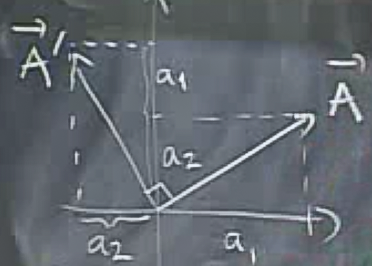 A⃗′
a₁
A⃗
a₂
a₂
a₁